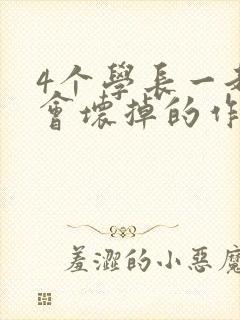 4个學長一
會壞掉的作
羞澀的小惡魔